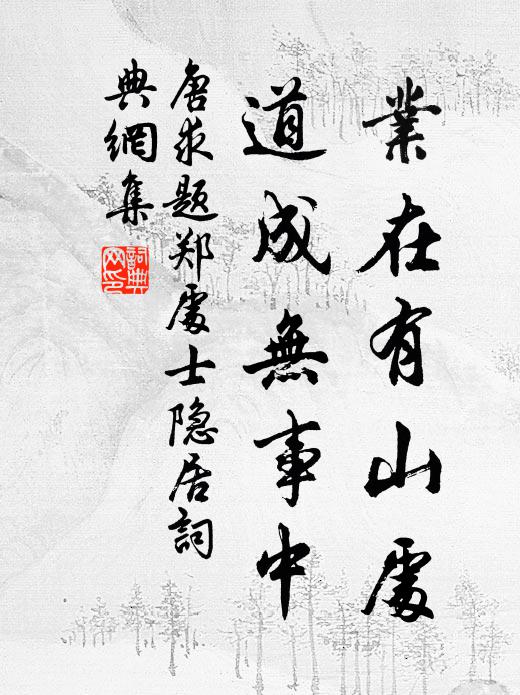 業在有山處
道成無事中
唐求题郑處士隐居詞
典網集
詞典
网印